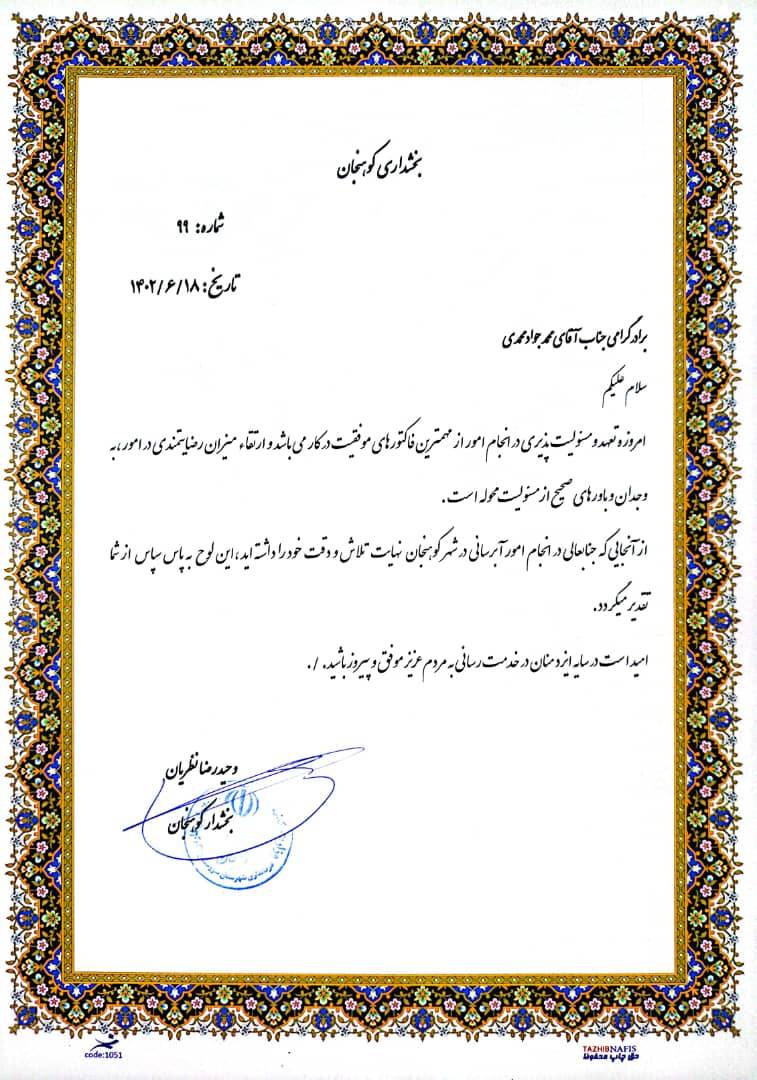 بخشداری کوهنجان
شماره: ۹۹
تاریخ: ۱۴۰۲/۶/۱۸
برادر گرامی جناب آقای محمد جواد محمدی
سلام علیکم
امروزه تعهد و مسئولیت پذیری در انجام امور از مهمترین فاکتورهای موفقیت در کار می باشد و ارتقاء میزان رضایتمندی در امور، به
وجدان و باورهای صحیح از مسئولیت محوله است.
از آنجایی که جنابعالی در انجام امور آبرسانی در شهر کوهنجان نهایت تلاش و دقت خود را داشته اید، این لوح به پاس سپاس از شما
تقدیر میگردد.
امید است در سایه ایزد منان در خدمت رسانی به مردم عزیز موفق و پیروز باشید. /.
وحیدرضا نظریان
بخشدار کوهنجان
فرمانداری شهرستان
code:1051
TAZHIBNAFIS
حق چاپ محفوظ